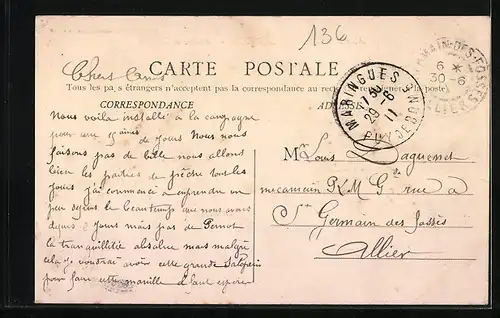 136
Chers Amis
CARTE POSTALE
Tous les pays étrangers n'acceptent pas la correspondance au recto
CORRESPONDANCE
ADRESSE
MARINGUES
29-6
11
PUY-DE-DOME
GERMAIN-DES-FOSSES
6 *
30-6
ALLIER
Nous voila installé à la campagne
pour une de jours Nous nous
faisons pas de bile nous allons
faire les parties de pêche tous les
jours j'ai commencé a
peu le beau temps que nous avons
depuis 2 jours mais pas de Pernot
la tranquillité absolue mais malgré
cela je voudrai avoir cette grande
pour faire cette manille
Mr Louis Daguenet
mecanicien P.L.M G rue a
St Germain des fossés
Allier